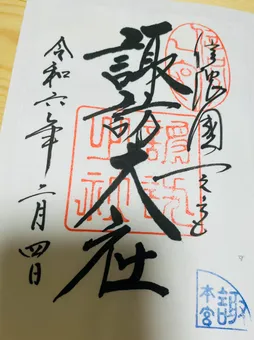 信濃國一之宮
諏訪大社
令和六年二月四日
諏訪大社
諏
本宮